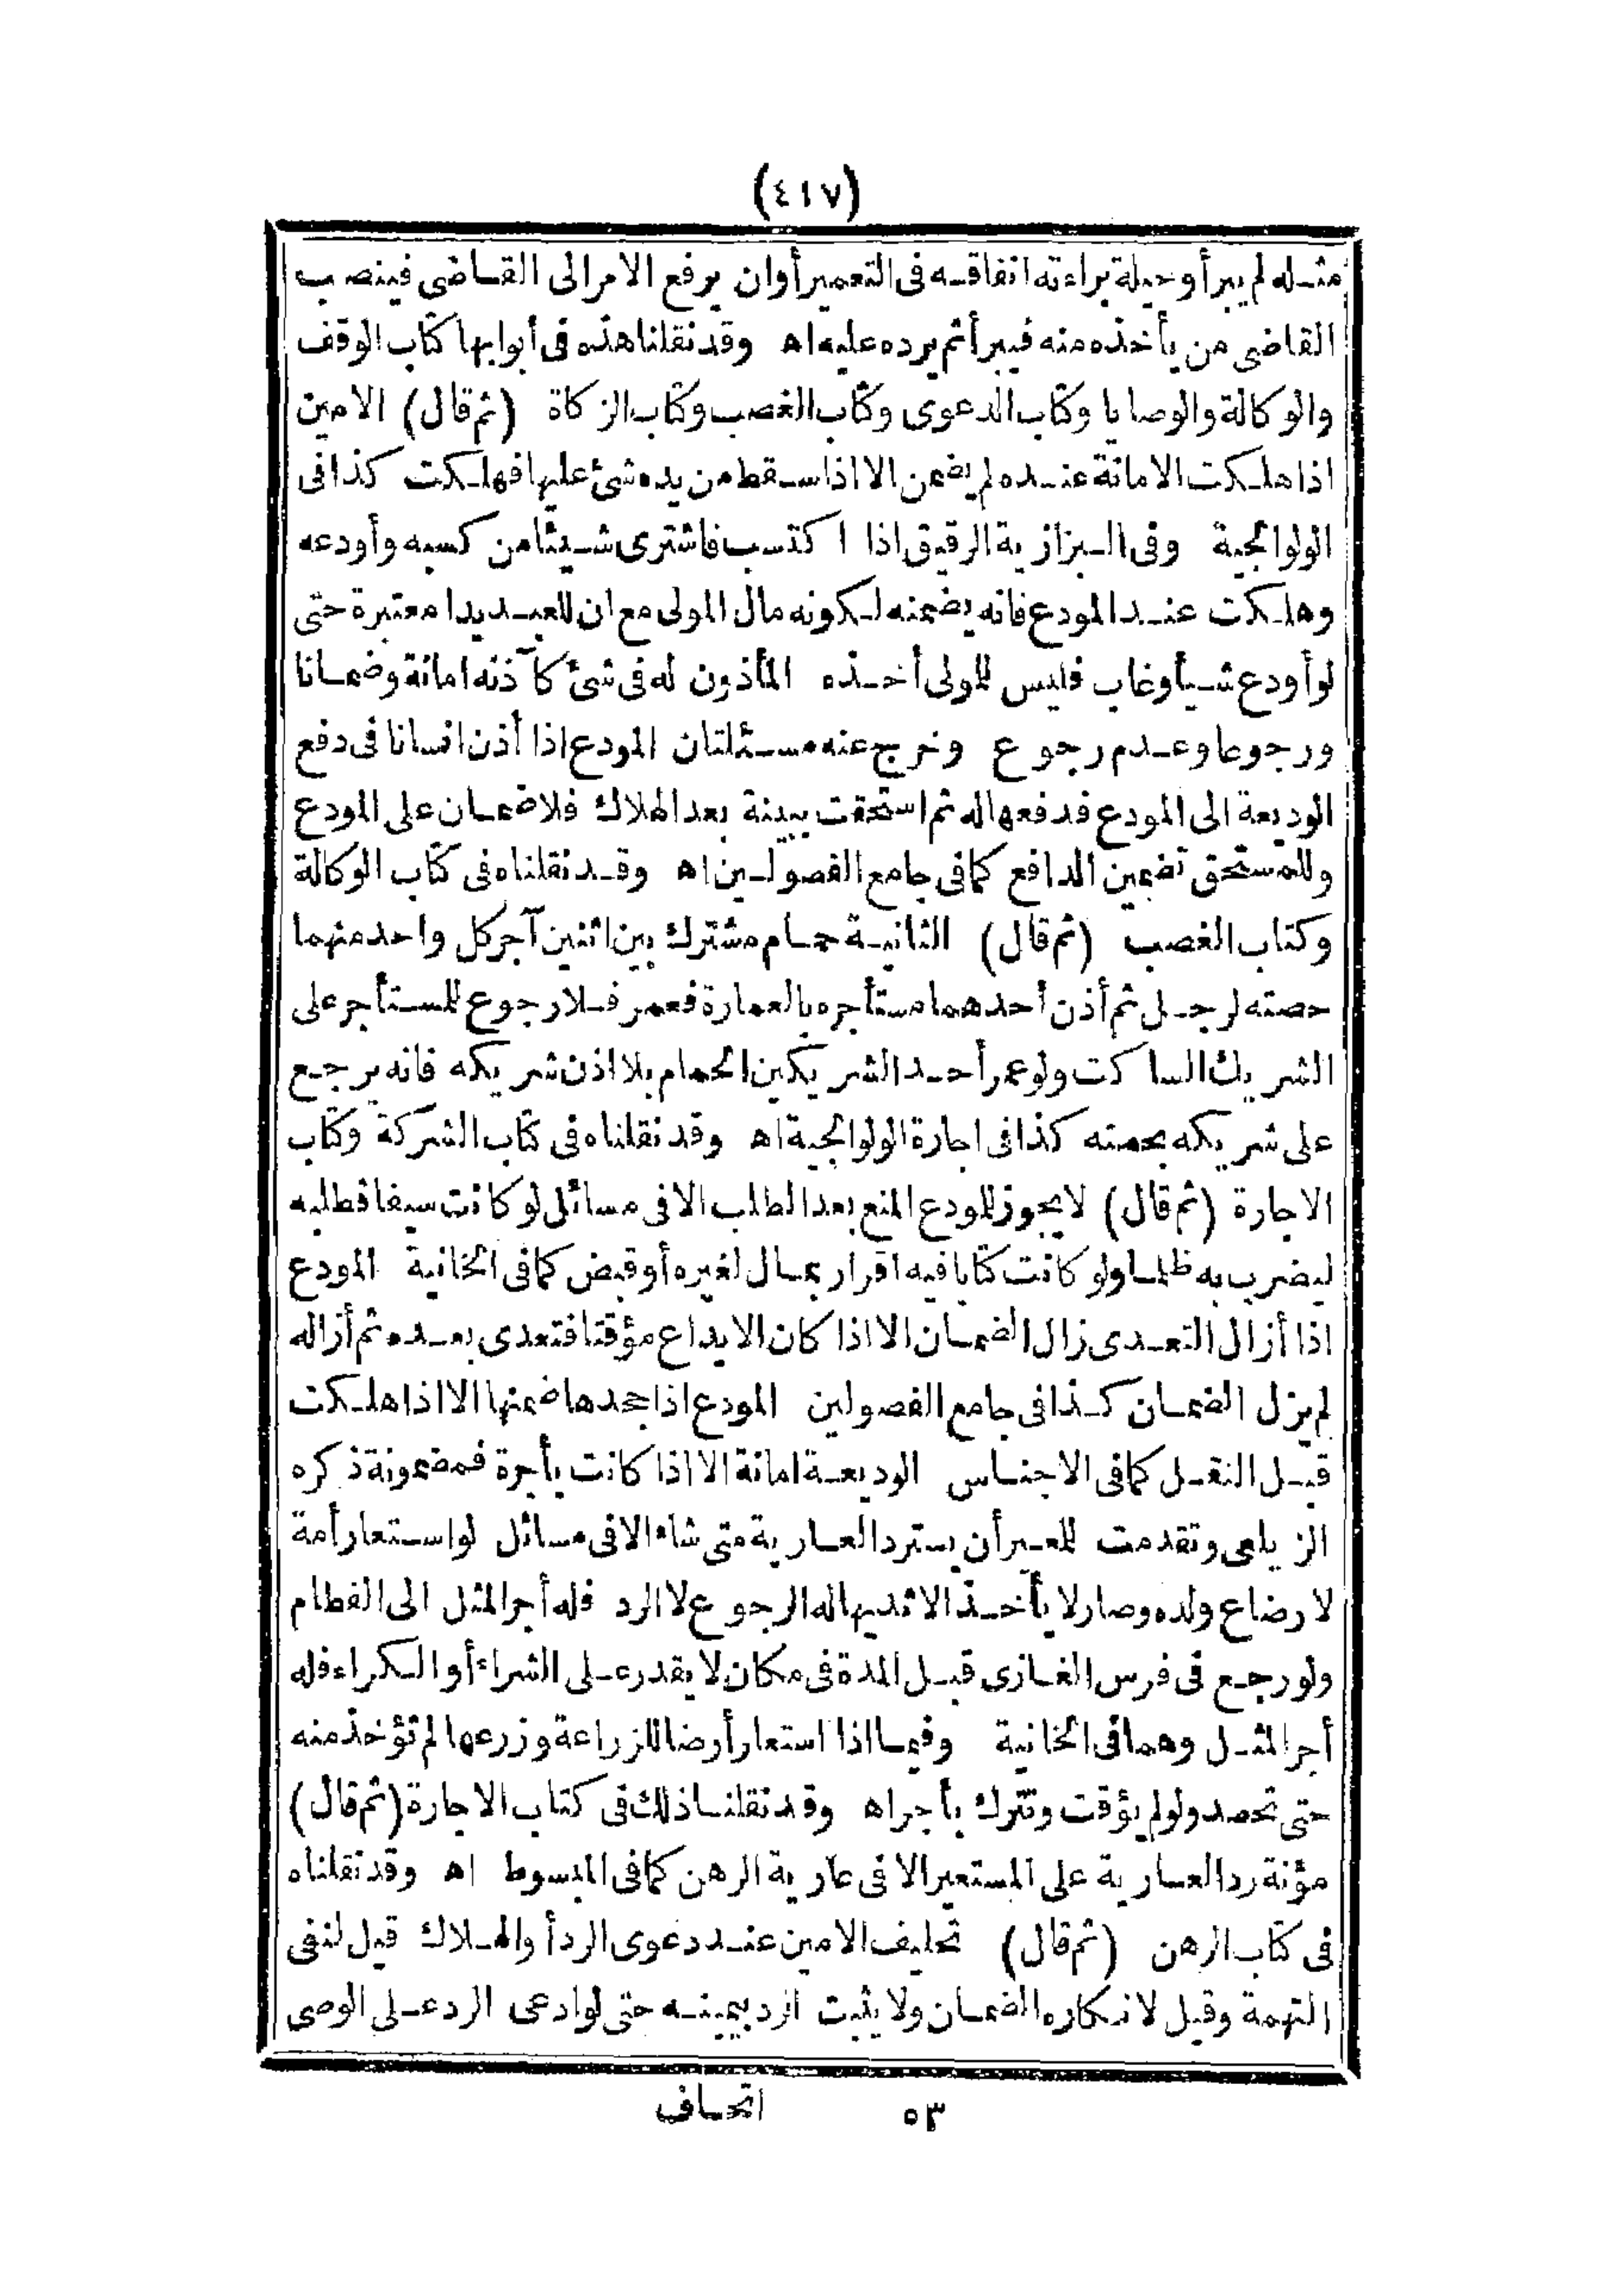 (٤١٧)
مثله لم يبرأ وحيلة براءته انفاقه فى التعمير أو ان يرفع الامر الى القاضى فينصب
القاضى من يأخذه منه فيبرأ ثم يرده عليه اه وقد نقلنا هذه فى أبوابها كتاب الوقف
والوكالة والوصايا وكتاب الدعوى وكتاب الغصب وكتاب الزكاة (ثم قال) الامين
اذا هلكت الامانة عنده لم يضمن الا اذا سقط من يده شئ عليها فهلكت كذا فى
الولوالجية وفى البزازية الرقيق اذا اكتسب فاشترى شيئا من كسبه وأودعه
وهلكت عند المودع فانه يضمنه لكونه مال المولى مع ان للعبد يدا معتبرة حتى
لو أودع شيأ وغاب فليس للمولى أخذه المأذون له فى شئ كآذنه امانة وضمانا
ورجوعا وعدم رجوع وخرج عنه مسئلتان المودع اذا أذن انسانا فى دفع
الوديعة الى المودع فدفعها له ثم استحقت ببينة بعد الهلاك فلا ضمان على المودع
وللمستحق تضمين الدافع كما فى جامع الفصولين اه وقد نقلناه فى كتاب الوكالة
وكتاب الغصب (ثم قال) الثانية حمام مشترك بين اثنين آجر كل واحد منهما
حصته لرجل ثم أذن أحدهما مستأجره بالعمارة فعمر فلا رجوع للمستأجر على
الشريك الساكت ولو عمر أحد الشريكين الحمام بلا اذن شريكه فانه يرجع
على شريكه بحصته كذا فى اجارة الولوالجية اه وقد نقلناه فى كتاب الشركة وكتاب
الاجارة (ثم قال) لا يجوز للمودع المنع بعد الطلب الا فى مسائل لو كانت سيفا فطلبه
ليضرب به ظلما ولو كانت كتابا فيه اقرار بمال لغيره أو قبض كما فى الخانية المودع
اذا أزال التعدى زال الضمان الا اذا كان الايداع مؤقتا فتعدى بعده ثم أزاله
لم يزل الضمان كذا فى جامع الفصولين المودع اذا جحدها ضمنها الا اذا هلكت
قبل النقل كما فى الاجناس الوديعة امانة الا اذا كانت بأجرة فمضمونة ذكره
الزيلعى وتقدمت للمعير أن يسترد العارية متى شاء الا فى مسائل لو استعار أمة
لارضاع ولده وصار لا يأخذ الا ثديها له الرجوع لا الرد فله أجر المثل الى الفطام
ولو رجع فى فرس الغازى قبل المدة فى مكان لا يقدر على الشراء أو الكراء فله
أجر المثل وهما فى الخانية وفيما اذا استعار أرضا للزراعة وزرعها لم تؤخذ منه
حتى تحصد ولو لم يؤقت وتترك بأجر اه وقد نقلنا ذلك فى كتاب الاجارة (ثم قال)
مؤنة رد العارية على المستعير الا فى عارية الرهن كما فى المبسوط اه وقد نقلناه
فى كتاب الرهن (ثم قال) تحليف الامين عند دعوى الرد أو الهلاك قيل لنفى
التهمة وقيل لانكاره الضمان ولا يثبت الرد بيمينه حتى لو ادعى الرد على الوصى
٥٣ اتحاف